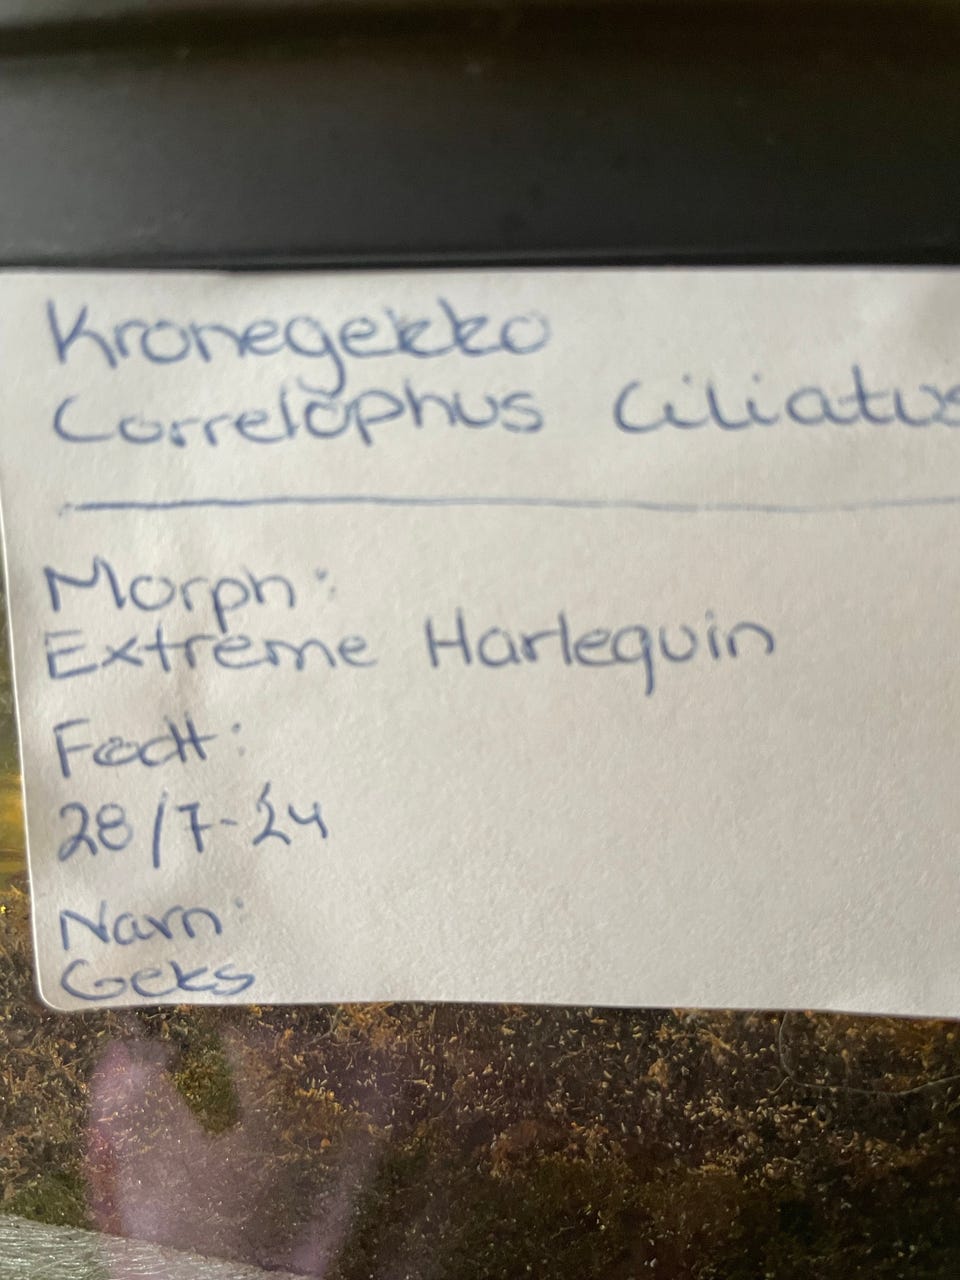 Kronegekko
Correlophus Ciliatus
Morph:
Extreme Harlequin
Født:
28/7-24
Navn:
Geks